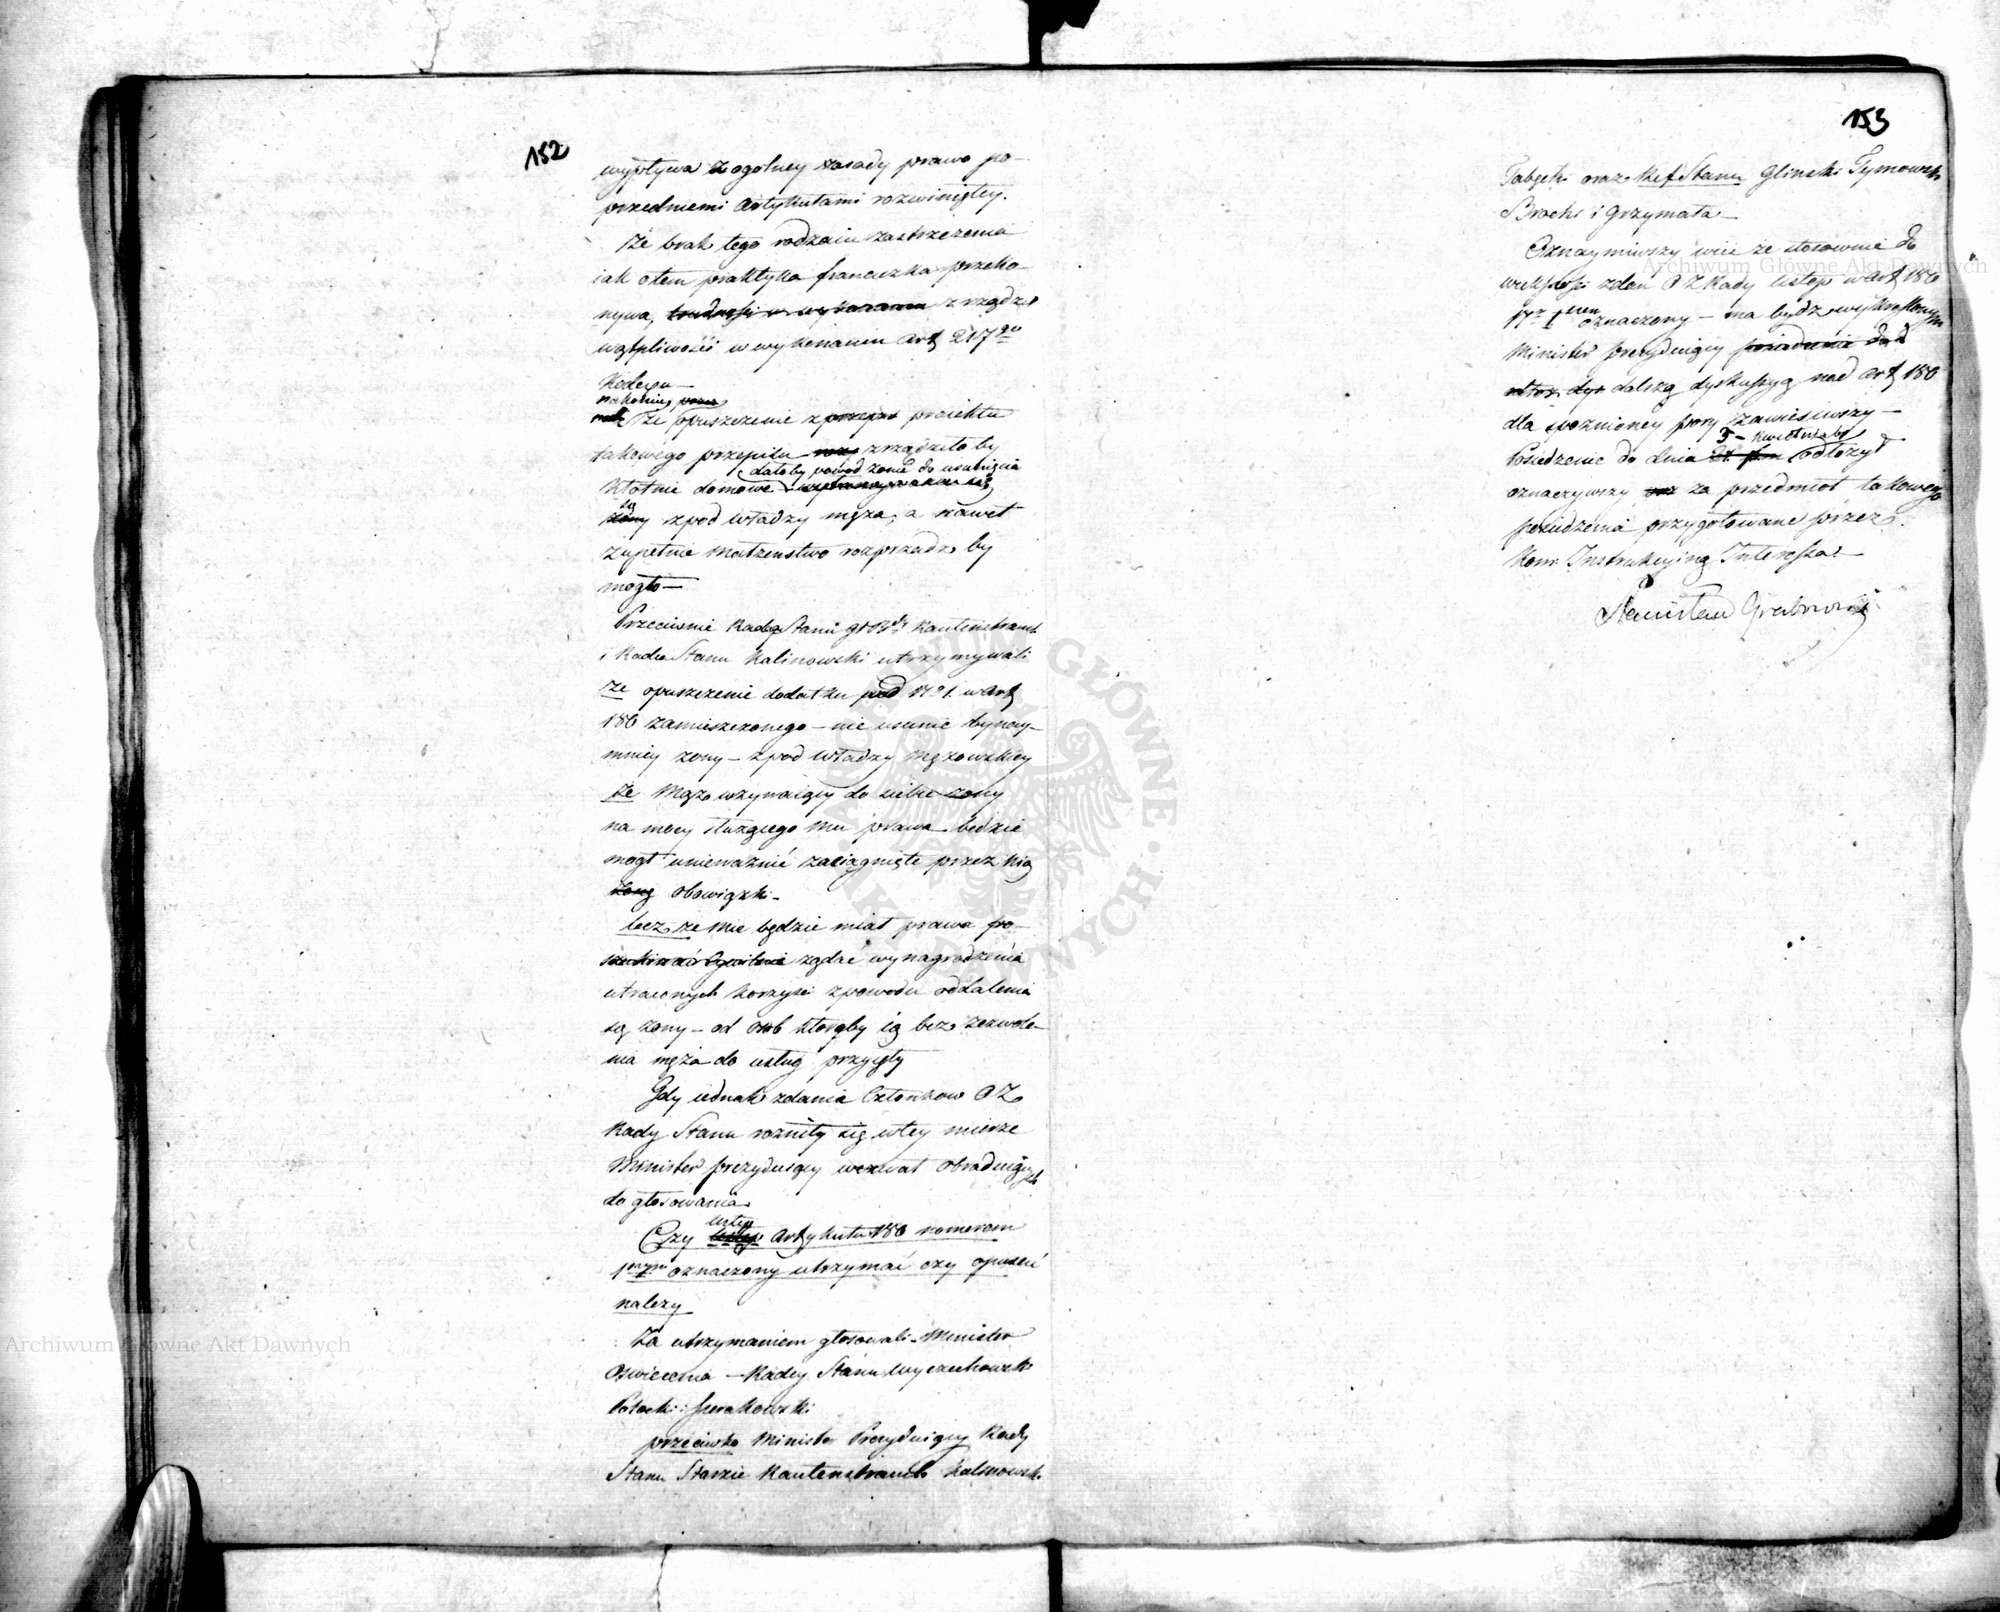 152
wypływa z ogolney zasady prawa po-
przedniemi Artykułami rozwiniętey.
Że brak tego rodzaiu zastrzeżenia
iak o tem praktyka francuzka przeko-
nywa, trudności w wykonaniu zrządza
wątpliwości w wykonaniu Art 217go
Kodexu —
nakoniec
Że opuszczenie z proiektu
takowego przepisu zrządziło by
dało by powod żonie do usunięcia
kłótnie domowe
się
żony z pod władzy męża, a nawet
zupełnie małżeństwo rozprządz by
mogło —
Przeciwnie Radcy Stanu Kautenstrauch
i Radca Stanu Kalinowski utrzymywali
że opuszczenie dodatku pod N° 1. w Art
180 zamieszczonego — nie usunie bynay-
mniey żony — z pod władzy Mężowskiey
że Mąż wzywaiący do siebie żony
na mocy służącego mu prawa będzie
mogł unieważnić zaciągnięte przez nią
żonę obowiązki.
lecz że nie będzie miał prawa po-
żądać wynagrodzenia
utraconych korzyści z powodu oddalenia
się żony — od osób któreby ią bez zezwole-
nia męża do usług przyięły
Gdy iednak zdania Członkow OZ
Rady Stanu rożniły się w tey mierze
Minister prezyduiący wezwał obraduiących
do głosowania
ustęp
Czy ustęp Artykułu 180 numerem
1wszym oznaczony utrzymać czy opuścić
należy
Za utrzymaniem głosowali — Minister
Oświecenia — Radcy Stanu Wyczechowski
Potocki i Sierakowski
przeciwko Minister Prezyduiący Radcy
Stanu Staszic Kautenstrauch Kalinowski
153
oraz Ref Stanu Glinski Tymowski
Brocki i Grzymała —
Oznaymiwszy więc że stosownie do
większości zdań OZ Rady ustęp w Art 180
Nrem 1 oznaczony — ma bydz wykreślonym
Minister prezyduiący posiedzenie
dalszą dyskussyą nad Art 180
dla spoznioney pory zawiesiwszy —
5 — kwietnia br
Posiedzenie do dnia odłożył
oznaczywszy za przedmiot takowego
posiedzenia przygotowane przez
Kom Instrukcyiną Interessa. —
Stanisław Grabowski
Archiwum Główne Akt Dawnych
Archiwum Główne Akt Dawnych
GŁÓWNE
AKT DAWNYCH